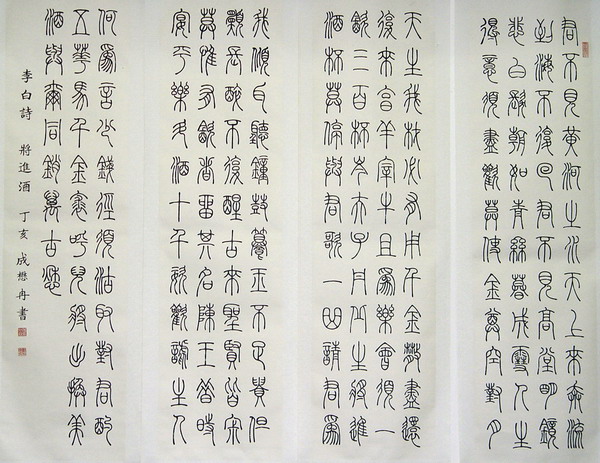 君不見黃河之水天上來奔流
到海不復回君不見高堂明鏡
悲白髮朝如青絲暮成雪人生
得意須盡歡莫使金尊空對月
天生我材必有用千金散盡還
復來烹羊宰牛且爲樂會須一
飲三百杯岑夫子丹丘生將進
酒杯莫停與君歌一曲請君爲
我傾耳聽鐘鼓饌玉不足貴但
願長醉不復醒古來聖賢皆寂
寞惟有飲者留其名陳王昔時
宴平樂斗酒十千恣歡謔主人
何爲言少錢徑須沽取對君酌
五華馬千金裘呼兒將出換美
酒與爾同銷萬古愁
李白詩 將進酒 丁亥 成懋冉書